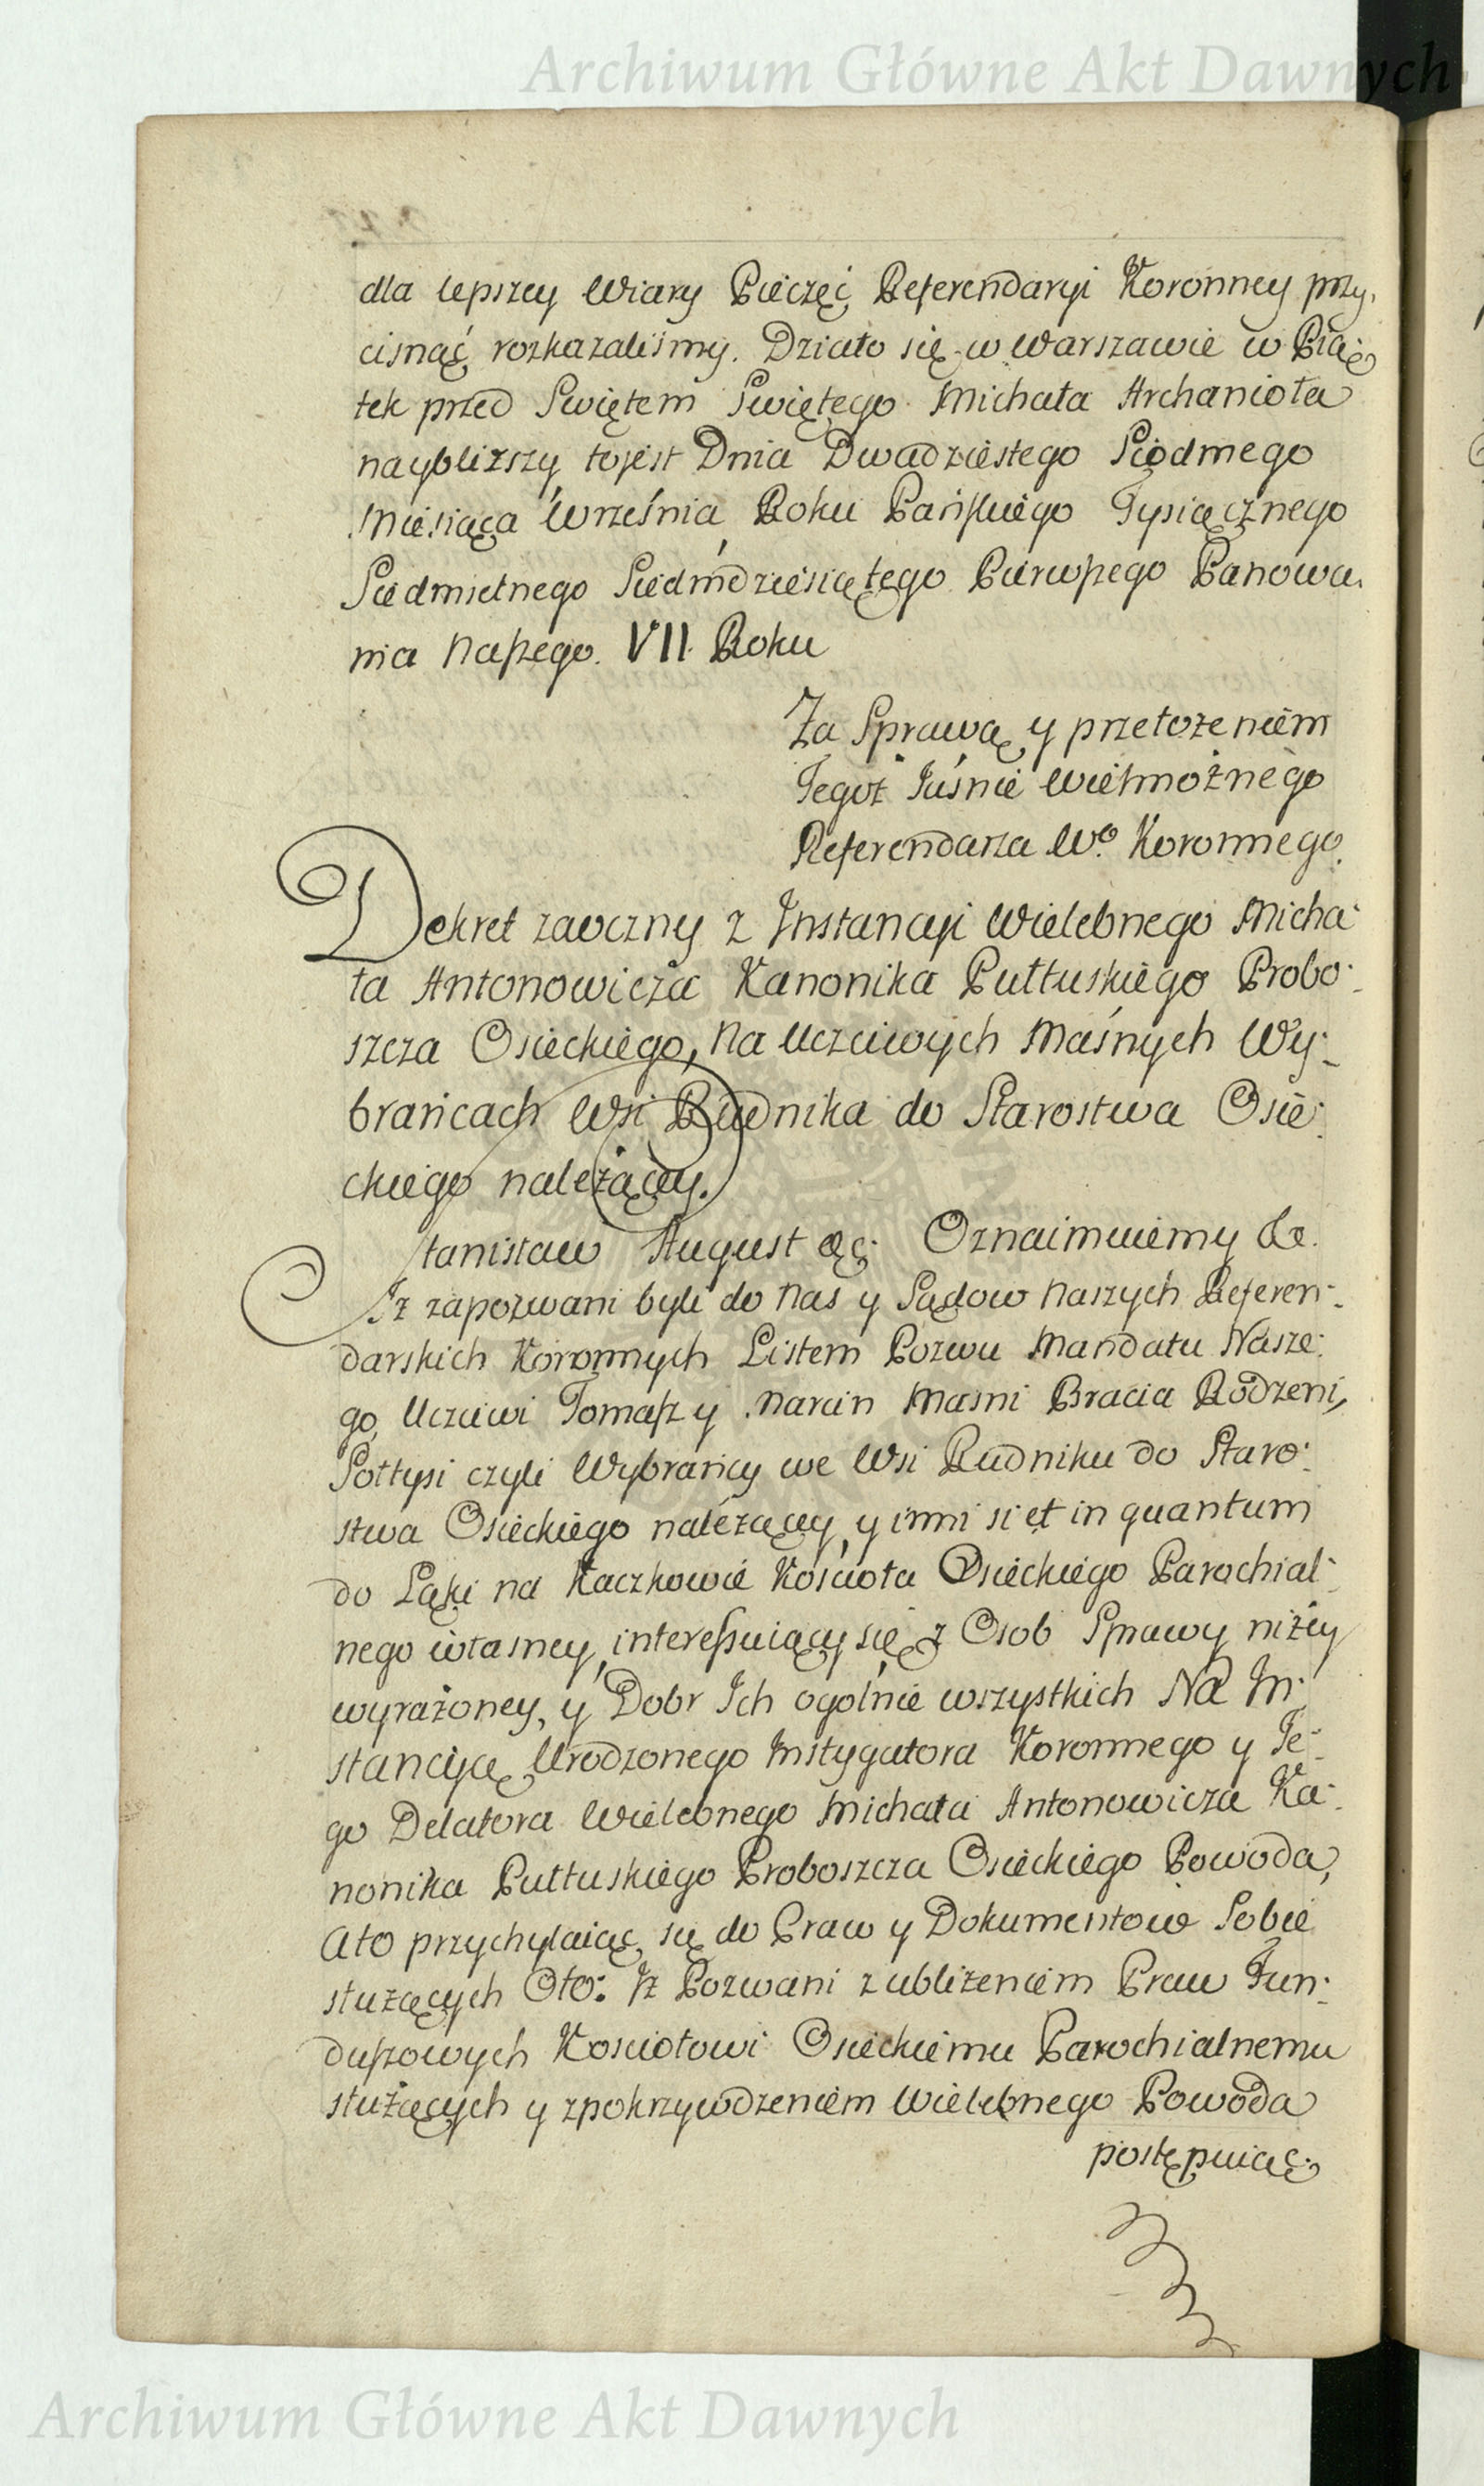 Archiwum Główne Akt Dawnych
dla lepszey Wiary Pieczęć Referendaryi Koronney przy,
cisnąć rozkazaliśmy. Działo się w Warszawie w Pią-
tek przed Swiętem Swiętego Michała Archanioła
naybliższy to jest Dnia Dwadziestego Siodmego
Miesiąca Września Roku Pańskiego Tysiącznego
Siedmsetnego Siedmdziesiątego Pierwszego Panowa.
nia Naszego. VII. Roku
Za Sprawą y przełożeniem
Tegoż Jaśnie Wielmożnego
Referendarza Wo. Koronnego.
Dekret zaoczny z Instancyi Wielebnego Micha-
ła Antonowicza Kanonika Pułtuskiego Probo-
szcza Osieckiego, Na Uczciwych Maśnych Wy-
brańcach Wsi Rudnika do Starostwa Osie-
ckiego należący.
Stanisław August &c. Oznaimuiemy &c.
Iz zapozwani byli do Nas y Sądow Naszych Referen-
darskich Koronnych Listem Pozwu Mandatu Nasze-
go, Uczciwi Tomasz y Marcin Maśni Bracia Rodzeni,
Sołtysi czyli Wybrańcy we Wsi Rudniku do Staro-
stwa Osieckiego należący, y inni si et in quantum
do Łąki na Kaczkowie Kościoła Osieckiego Parochial-
nego własney, interessuiący się z Osob Sprawy niżey
wyrażoney, y Dobr Ich ogolnie wszystkich Na In-
stancyą Urodzonego Instygatora Koronnego y Ie-
go Delatora Wielebnego Michała Antonowicza Ka-
nonika Pułtuskiego Proboszcza Osieckiego Powoda,
Ato przychylaiąc się do Praw y Dokumentow Sobie
służących Oto: Iz Pozwani z ubliżeniem Praw Fun-
duszowych Kościołowi Osieckiemu Parochialnemu
służących y zpokrzywdzeniem Wielebnego Powoda
postępuiąc
Archiwum Główne Akt Dawnych